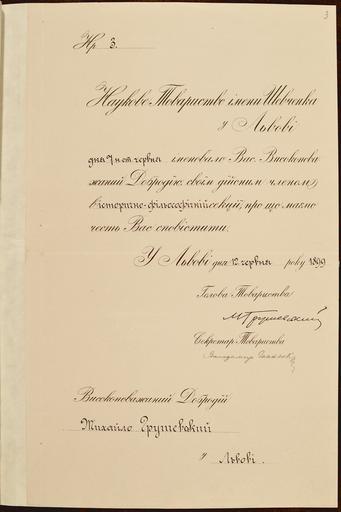 3
Нр 3.
Наукове Товариство імени Шевченка
у Львові
дня 7 н. ст. червня іменовало Вас, Високопова
жаний Добродїю, своїм дїйсним членом
в історично-фільософічній секциї, про що маємо
честь Вас сповістити.
У Львові дня 12 червня року 1899
Голова Товариства
МГрушевський
Секретар Товариства
Високоповажаний Добродїй
Михайло Грушевский
у Львові.